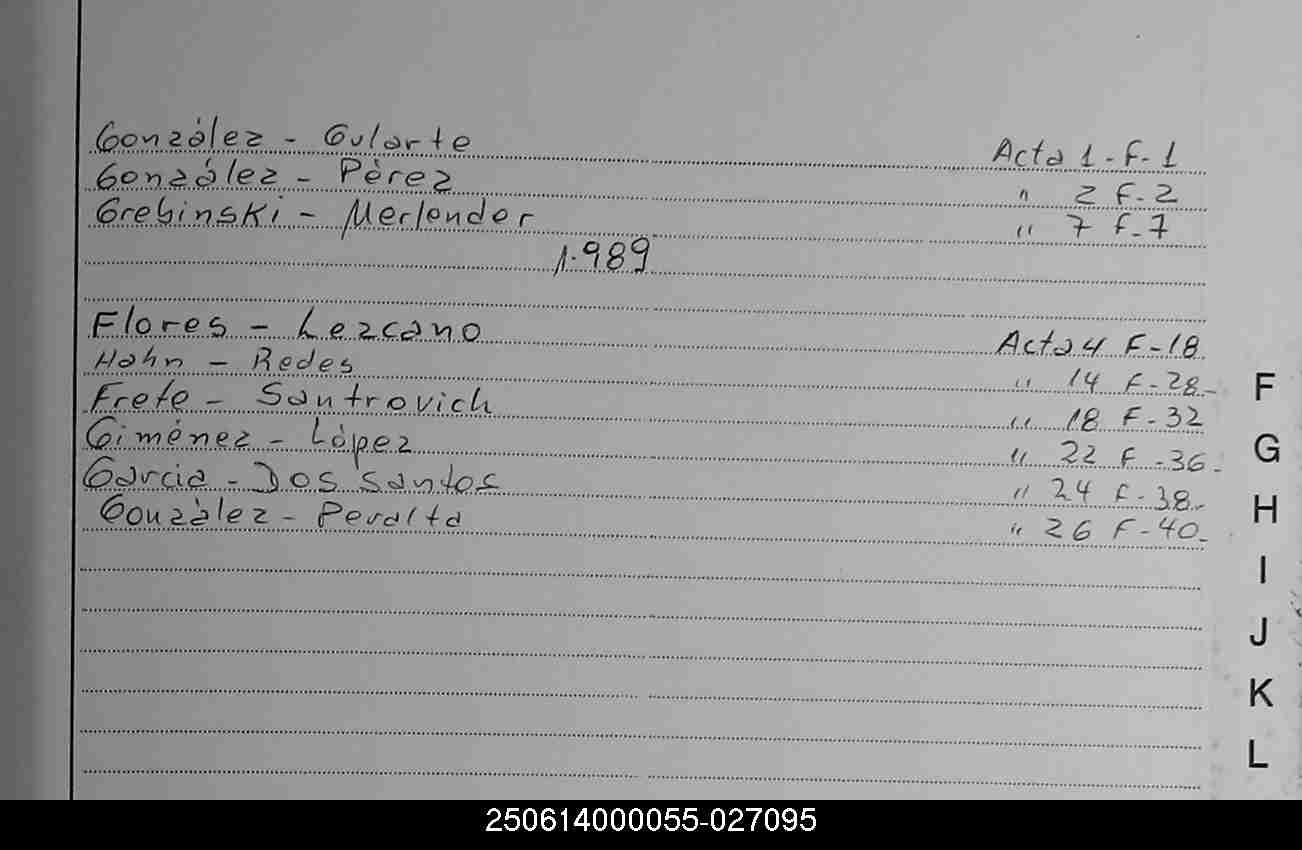 González - Gularte Acta 1 - F - 1
González - Pérez " 2 F - 2
Grebinski - Merlender " 7 F - 7
1.989
Flores - Lezcano Acta 4 F - 18
Hahn - Redes " 14 F - 28 -
Frete - Santrovich " 18 F - 32
Giménez - López " 22 F - 36 -
Garcia - Dos Santos " 24 F - 38 -
González - Peralta " 26 F - 40 -
F
G
H
I
J
K
L
250614000055-027095